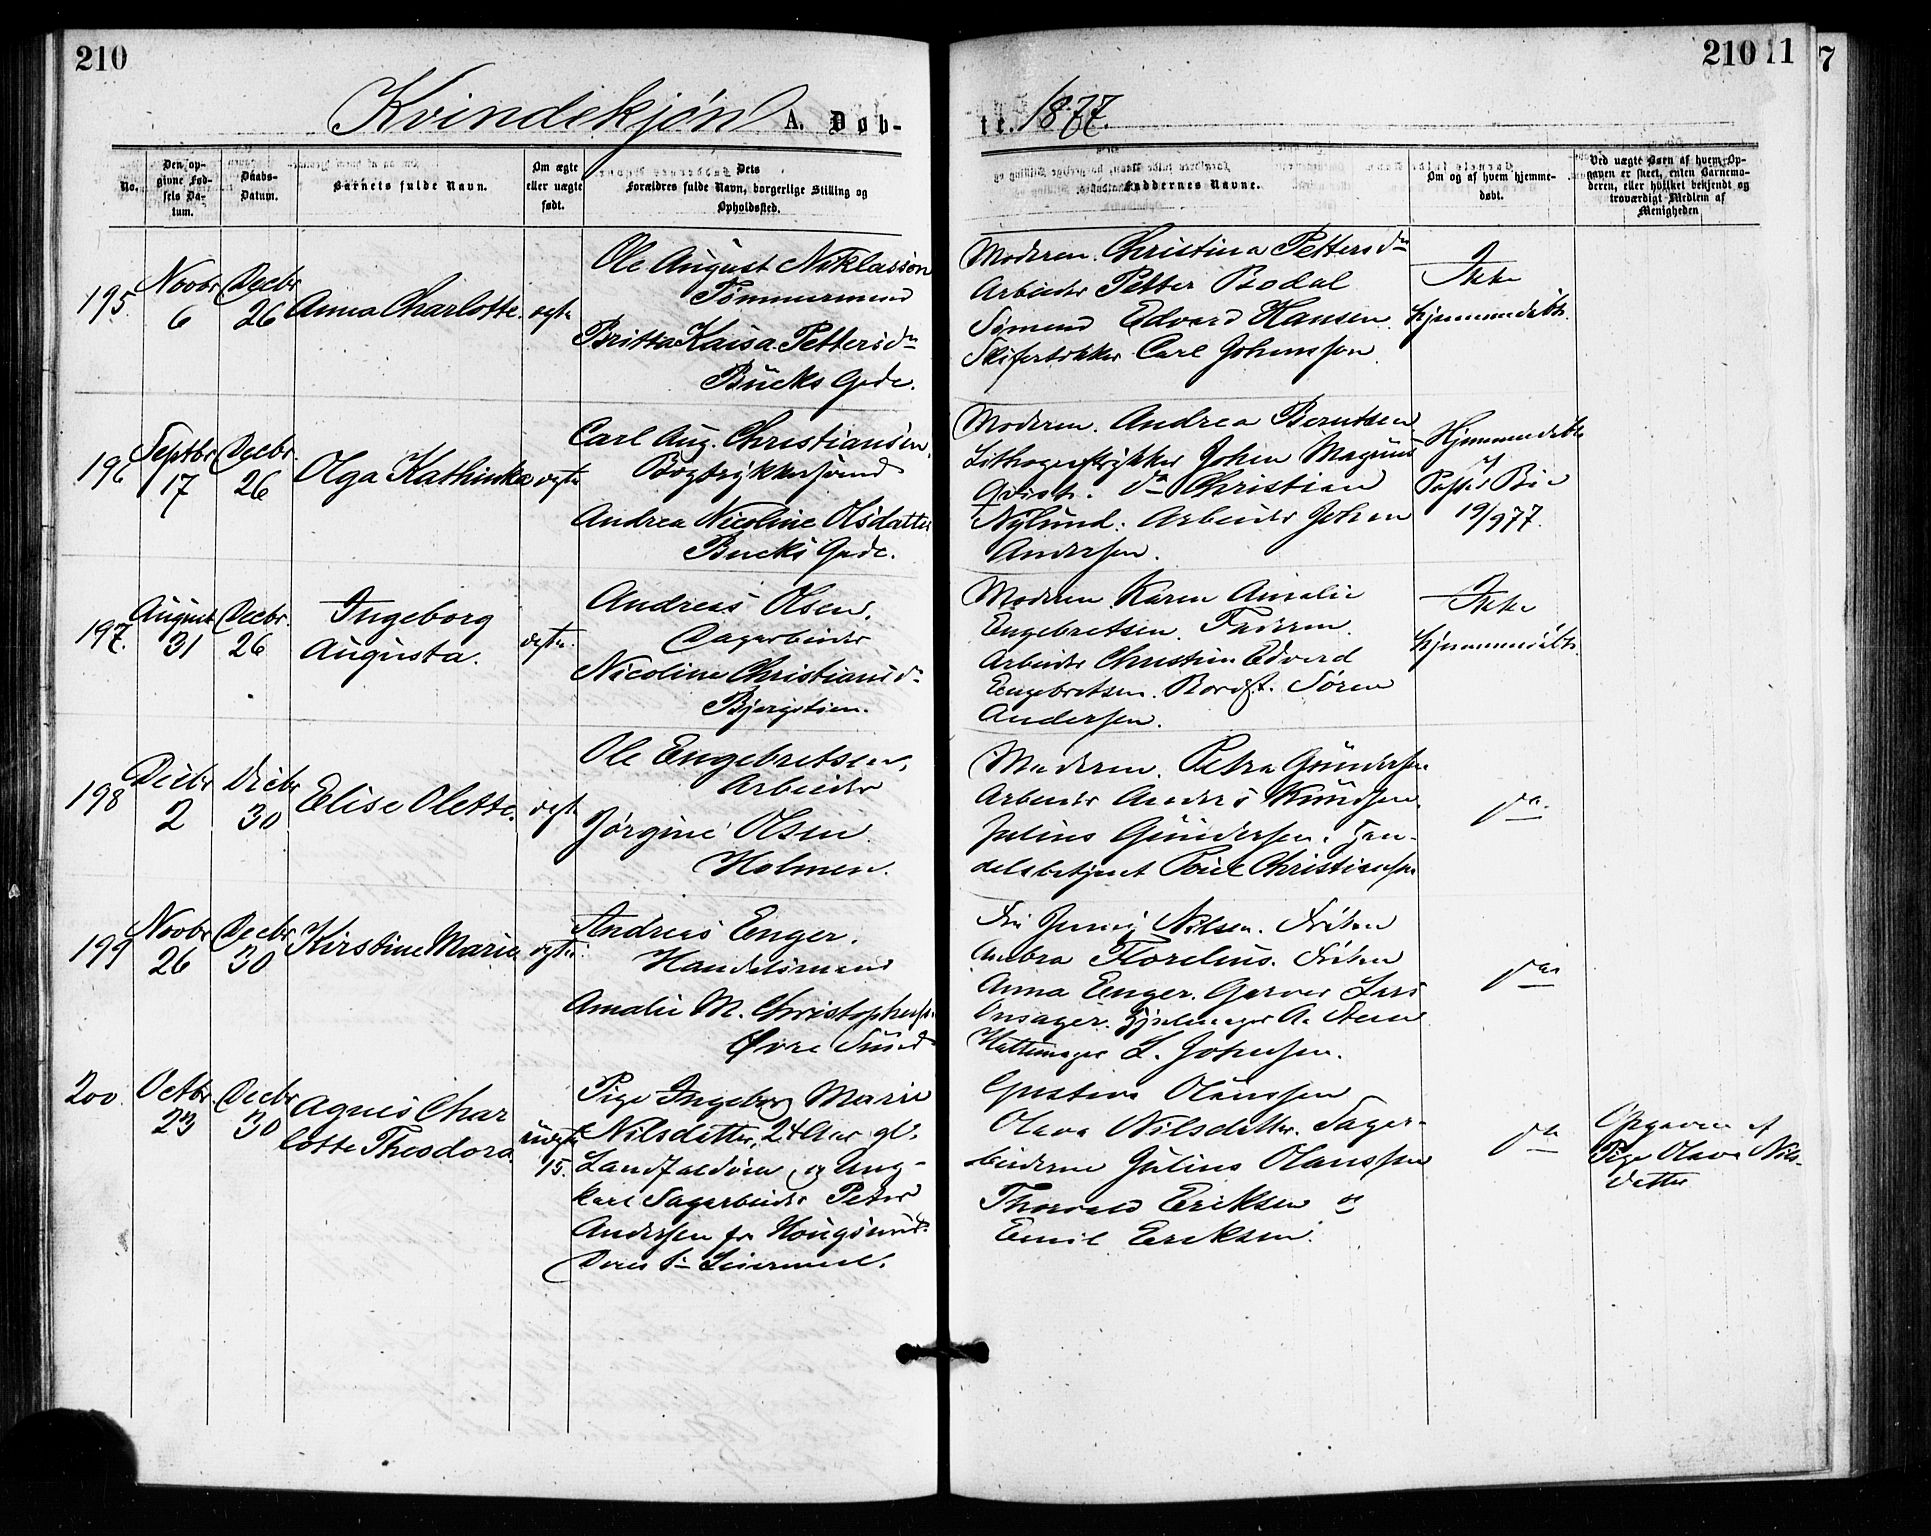 210
210 11 7
Kvindekjøn A. Døb-
te. 1877.
No.
Den op-
givne Fød-
sels Da-
tum.
Daabs-
Datum.
Barnets fulde Navn.
Om ægte
eller uægte
født.
Dets
Forældres fulde Navn, borgerlige Stilling og
Opholdssted.
Faddernes Navne.
Om og af hvem hjemme-
døbt.
Ved uægte Børn af hvem Op-
gaven er skeet, enten Barnemo-
deren, eller hvilket bekjendt og
troværdigt Medlem af
Menigheden
195.
Novbr
6
Decbr
26
Anna Charlotte.
ægte
Ole August Niklasson
Tømmermand
Britta Kaisa Pettersdr
Bücks Gade.
Moderen. Christina Pettersdr
Arbeider Petter Bodal
Sømand Edvard Hansen.
Skifertækker Carl Johansson.
Ikke
hjemmedøbt.
196
Septbr
17
Decbr.
26
Olga Kathinka
ægte
Carl Aug. Christiansen,
Bogtrykkersvend
Andrea Nicoline Olsdatter
Bucks Gade.
Moderen. Andrea Berntsen
Lithograftrykker Johan Magnus
Qvist. do Christian
Nylund. Arbeider Johan
Andersen.
Hjemmedøbt
af
Pastor Bie
19/9 77.
197.
August
31
Decbr.
26
Ingeborg
Augusta.
ægte.
Andreas Olsen,
Dagarbeider
Nicoline Christiansdr
Bjergstien.
Moderen Karen Amalie
Engebretsen. Faderen.
Arbeider Christian Edvard
Engebretsen. Bordst. Søren
Andersen.
Ikke
hjemmedøbt.
198
Decbr
2
Decbr
30
Elise Olette.
ægte
Ole Engebretsen,
Arbeider
Jørgine Olsen.
Holmen.
Moderen. Petra Gundersen
Arbeider Anders Knudsen.
Julius Gundersen. Han-
delsbetjent Poul Christiansen
do
199
Novbr
26
Decbr
30
Kirstine Marie
ægte.
Andreas Enger.
Handelsmand
Amalie M. Christophersen
Øvre Sund
Fru Jenny Nilsen. Frøken
Andrea Florelius. Frøken
Anna Enger. Garver Lars
Onsager. Hjulmager A. Steen
Hattemager L. Johnsen.
do
200.
Octbr.
23
Decbr
30
Agnes Char
lotte Theodora.
uægte
15.
Pige Ingeborg Marie
Nilsdatter, 24 Aar gl.
Landfaldøen og Ung-
karl Sagarbeider Peter
Andersen fra Hougsund.
Deres 1ste Leiermaal.
Gustava Olaussen
Olava Nilsdatter. Sagar-
beiderne Julius Olaussen
Thorvald Eriksen og
Emil Eriksen.
do
Opgaven af
Pige Olava Nils-
datter